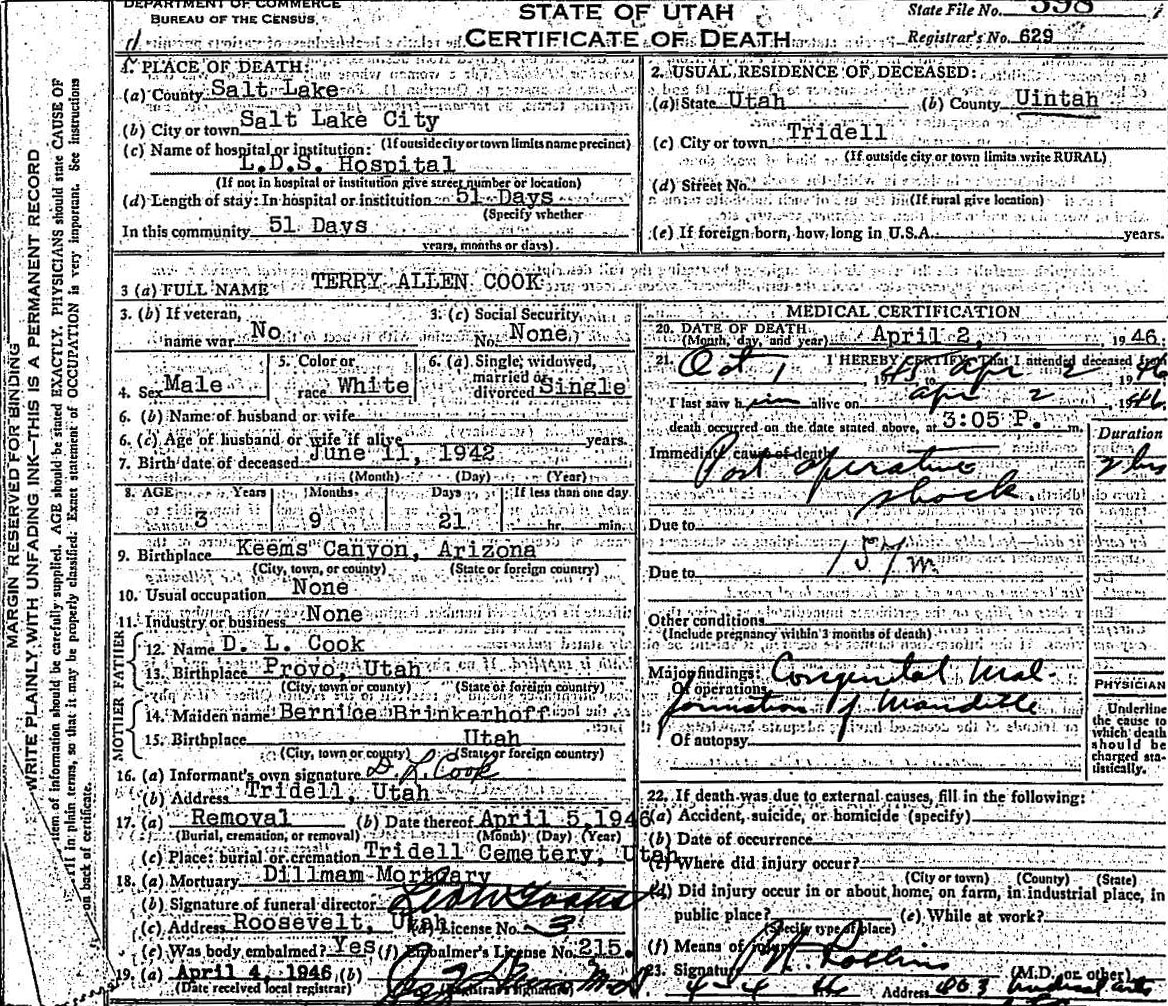 DEPARTMENT OF COMMERCE
BUREAU OF THE CENSUS
STATE OF UTAH
CERTIFICATE OF DEATH
State File No. 598
Registrar's No. 629
MARGIN RESERVED FOR BINDING
WRITE PLAINLY WITH UNFADING INK—THIS IS A PERMANENT RECORD
item of information should be carefully supplied. AGE should be stated EXACTLY. PHYSICIANS should state CAUSE OF
in plain terms, so that it may be properly classified. Exact statement of OCCUPATION is very important. See instructions
on back of certificate.
1. PLACE OF DEATH:
(a) County Salt Lake
(b) City or town Salt Lake City
(If outside city or town limits name precinct)
(c) Name of hospital or institution:
L.D.S. Hospital
(If not in hospital or institution give street number or location)
(d) Length of stay: In hospital or institution 51 Days
(Specify whether
In this community 51 Days
years, months or days)
2. USUAL RESIDENCE OF DECEASED:
(a) State Utah (b) County Uintah
(c) City or town Tridell
(If outside city or town limits write RURAL)
(d) Street No.
(If rural give location)
(e) If foreign born, how long in U.S.A. years.
3 (a) FULL NAME TERRY ALLEN COOK
3. (b) If veteran, name war No
3. (c) Social Security No. None
4. Sex Male
5. Color or race White
6. (a) Single, widowed, married or divorced Single
6. (b) Name of husband or wife
6. (c) Age of husband or wife if alive years.
7. Birth date of deceased June 11, 1942
(Month) (Day) (Year)
8. AGE Years Months Days If less than one day
3 9 21 hr. min.
9. Birthplace Keems Canyon, Arizona
(City, town, or county) (State or foreign country)
10. Usual occupation None
11. Industry or business None
FATHER
12. Name D. L. Cook
13. Birthplace Provo, Utah
(City, town or county) (State or foreign country)
MOTHER
14. Maiden name Bernice Brinkerhoff
15. Birthplace Utah
(City, town or county) (State or foreign country)
16. (a) Informant's own signature D. L. Cook
(b) Address Tridell, Utah
17. (a) Removal (b) Date thereof April 5, 1946
(Burial, cremation, or removal) (Month) (Day) (Year)
(c) Place: burial or cremation Tridell Cemetery, Utah
18. (a) Mortuary Dillman Mortuary
(b) Signature of funeral director
(c) Address Roosevelt, Utah (d) License No. 3
(e) Was body embalmed? Yes (f) Embalmer's License No. 215.
19. (a) April 4, 1946 (b)
(Date received local registrar) (Registrar's signature)
MEDICAL CERTIFICATION
20. DATE OF DEATH April 2, 1946.
(Month, day, and year)
21. I HEREBY CERTIFY, That I attended deceased from
Oct 1 1945 to Apr 2 1946
I last saw him alive on Apr 2, 1946.
death occurred on the date stated above, at 3:05 P. m.
Duration
Immediate cause of death
Post operative 2 hrs
shock.
Due to
157 m
Due to
Other conditions
(Include pregnancy within 3 months of death)
Major findings: Congenital Mal-
Of operations formation of Mandible
Of autopsy
PHYSICIAN
Underline
the cause to
which death
should be
charged sta-
tistically.
22. If death was due to external causes, fill in the following:
(a) Accident, suicide, or homicide (specify)
(b) Date of occurrence
(c) Where did injury occur?
(City or town) (County) (State)
(d) Did injury occur in or about home, on farm, in industrial place, in
public place? (e) While at work?
(Specify type of place)
(f) Means of injury
23. Signature Rollins
(M.D. or other)
4-4 46 Address 803 Medical Arts